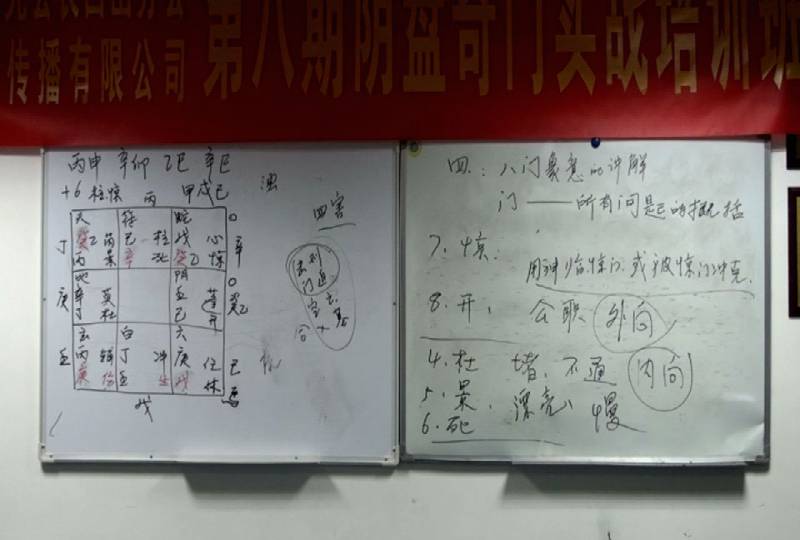 传播有限公司
第八期阴盘奇门实战培训班
丙申 辛卯 乙巳 辛巳
+6 柱惊 丙 甲戌己
天 符 蛇 〇
癸乙 芮 巳 柱 戊 心 辛
丁 丙 景 辛 死 癸乙 惊
地 阴 〇
庚 辛 英 壬 蓬 癸乙
丁 杜 己 开
玄 白 六
壬 丙 辅 丁 冲 庚 任 己
庚 伤 壬 生 戊 休 马
戊
四害
击刑
门迫
空亡
入墓
四、八门象意的讲解
门——所有问题的概括
7. 惊:
用神临惊门或被惊门冲克.
8. 开, 公职 外向
4. 杜 堵, 不通 内向
5. 景, 漂亮 慢
6. 死